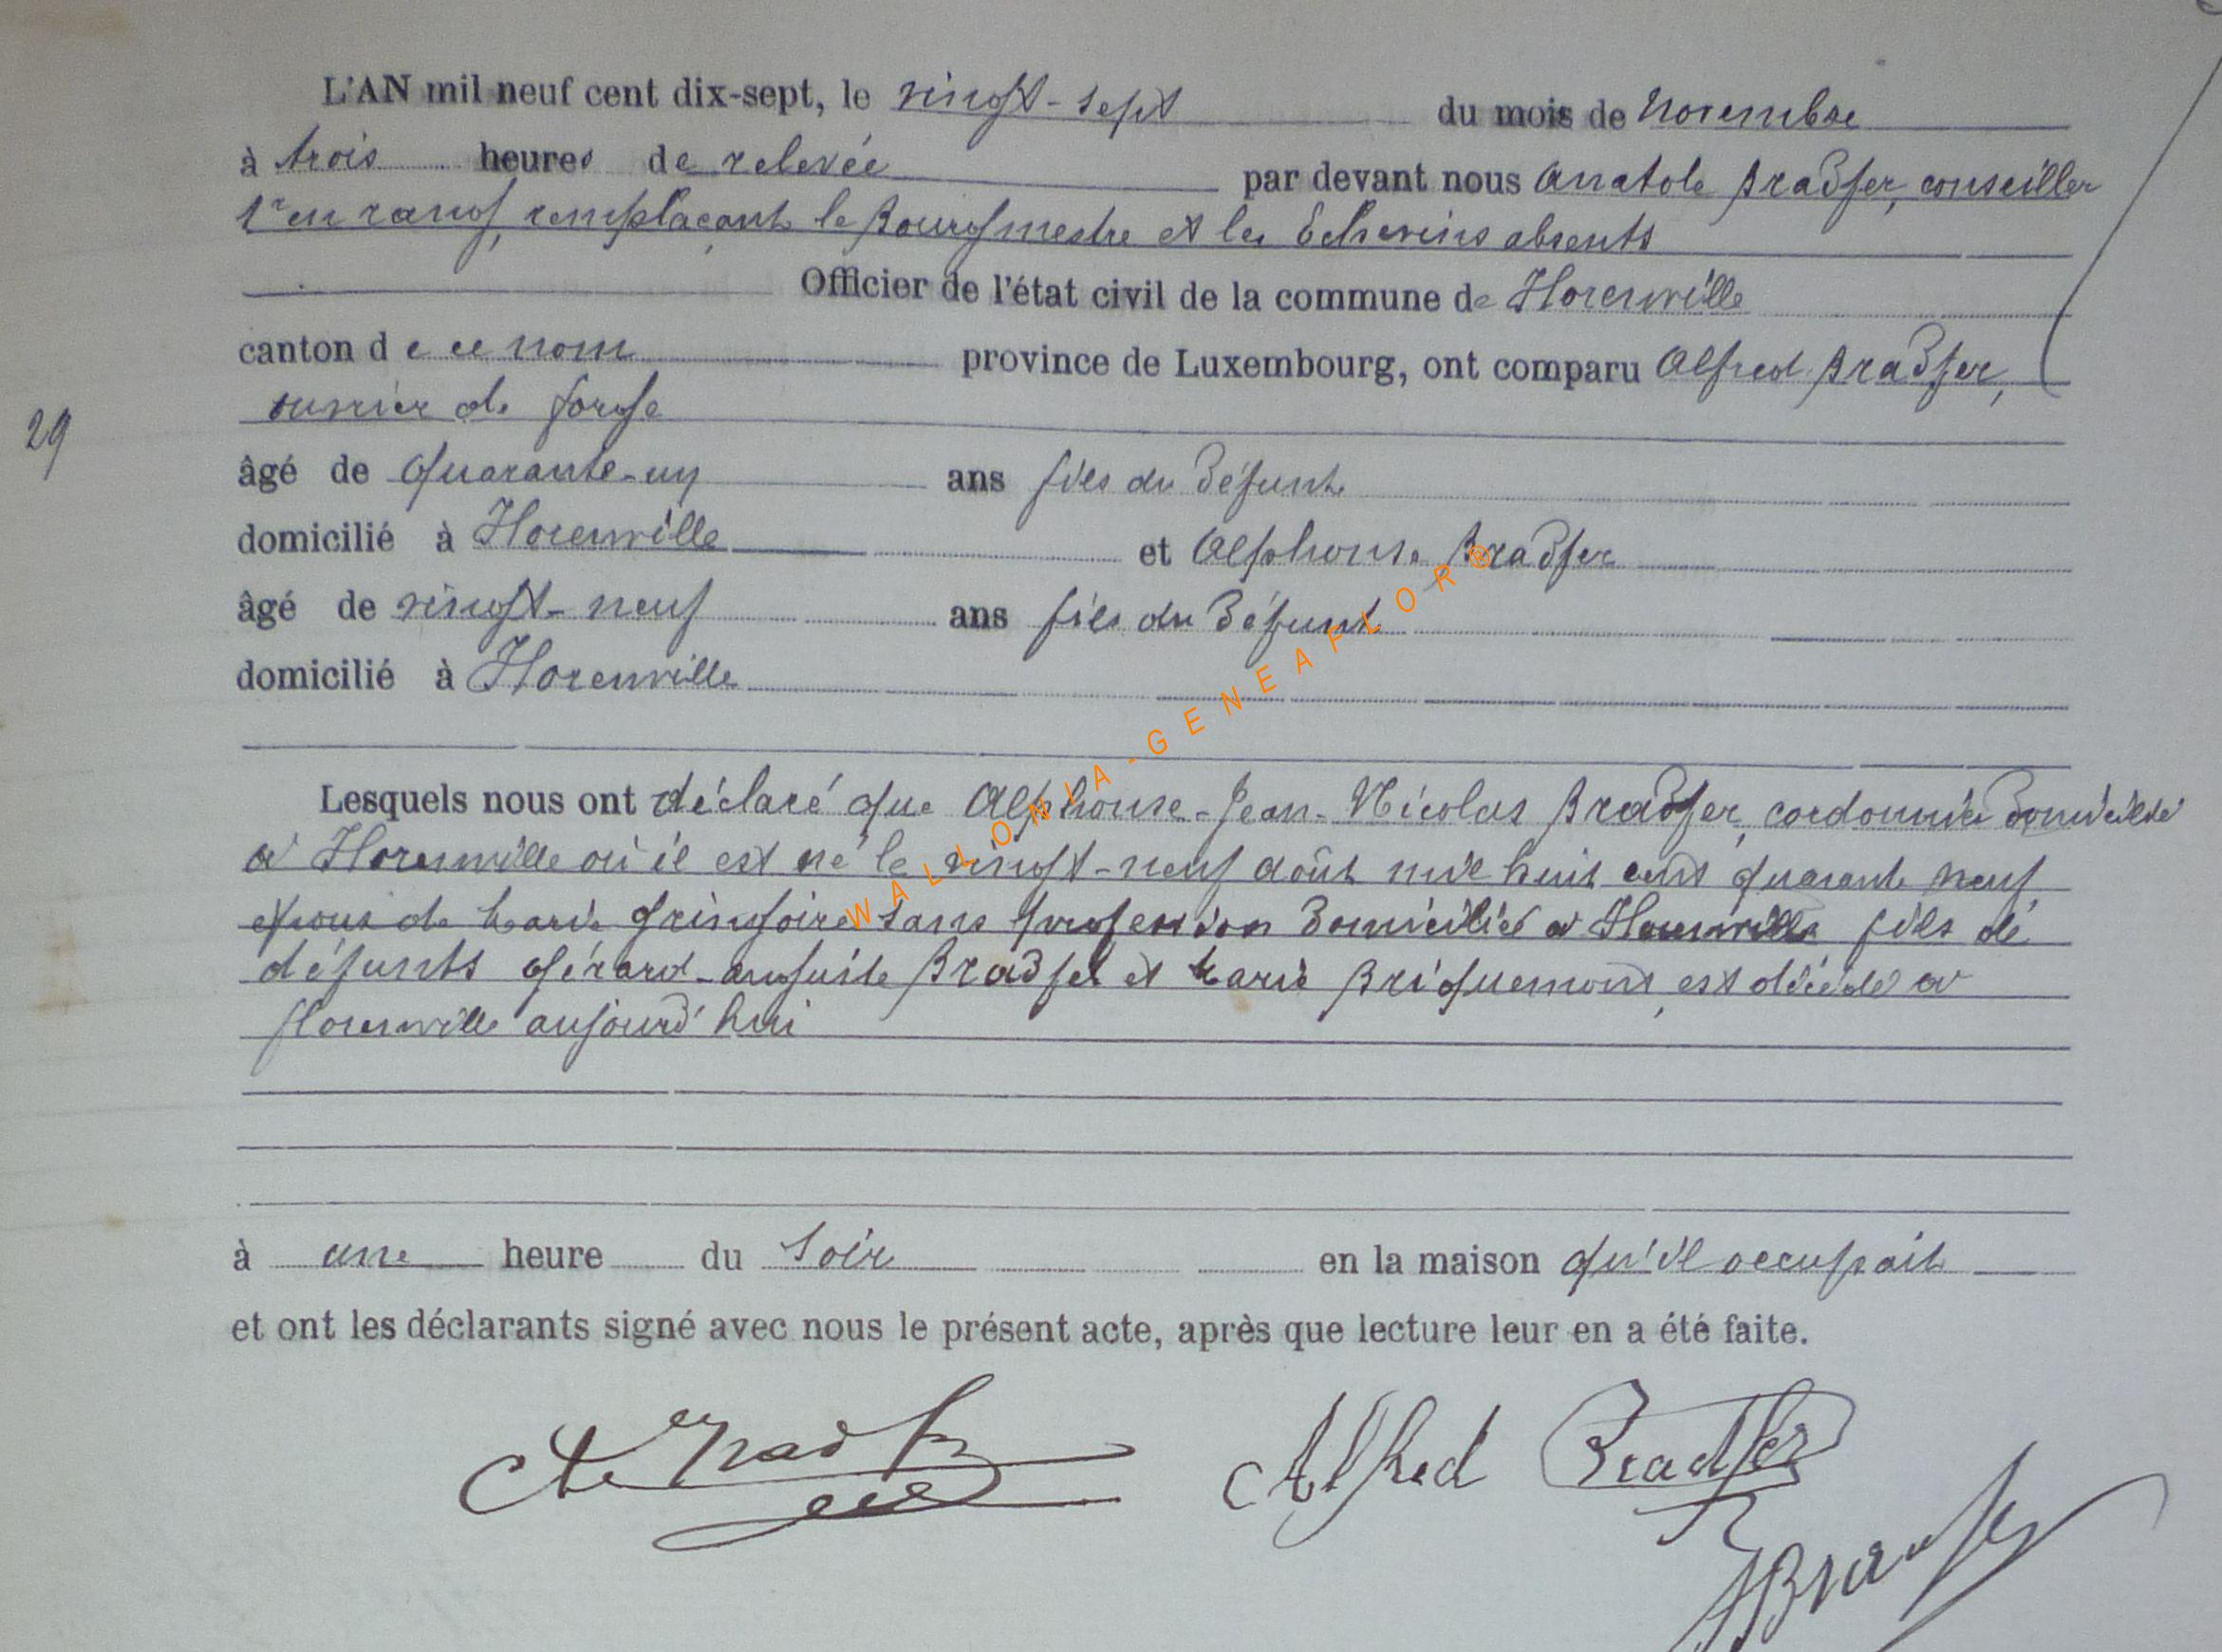 L'AN mil neuf cent dix-sept, le vingt-sept du mois de Novembre
à trois heures de relevée par devant nous Anatole Bradfer, conseiller
1er en rang, remplaçant le Bourgmestre et les Echevins absents
Officier de l'état civil de la commune de Florenville
canton de ce nom province de Luxembourg, ont comparu Alfred Bradfer,
ouvrier de forge
29
âgé de quarante-un ans fils du défunt
domicilié à Florenville et Alphonse Bradfer
âgé de vingt-neuf ans fils du défunt
domicilié à Florenville
Lesquels nous ont déclaré que Alphonse-Jean-Nicolas Bradfer, cordonnier domicilié
à Florenville où il est né le vingt-neuf août mil huit cent quarante neuf,
époux de Marie Gringoire sans profession domiciliée à Florenville fils de
défunts Gérard-auguste Bradfer et Marie Briquemont, est décédé à
florenville aujourd'hui
à une heure du soir en la maison qu'il occupait
et ont les déclarants signé avec nous le présent acte, après que lecture leur en a été faite.
Alfred Bradfer
ABradfer
WALLONIA-GENEAFLOR®